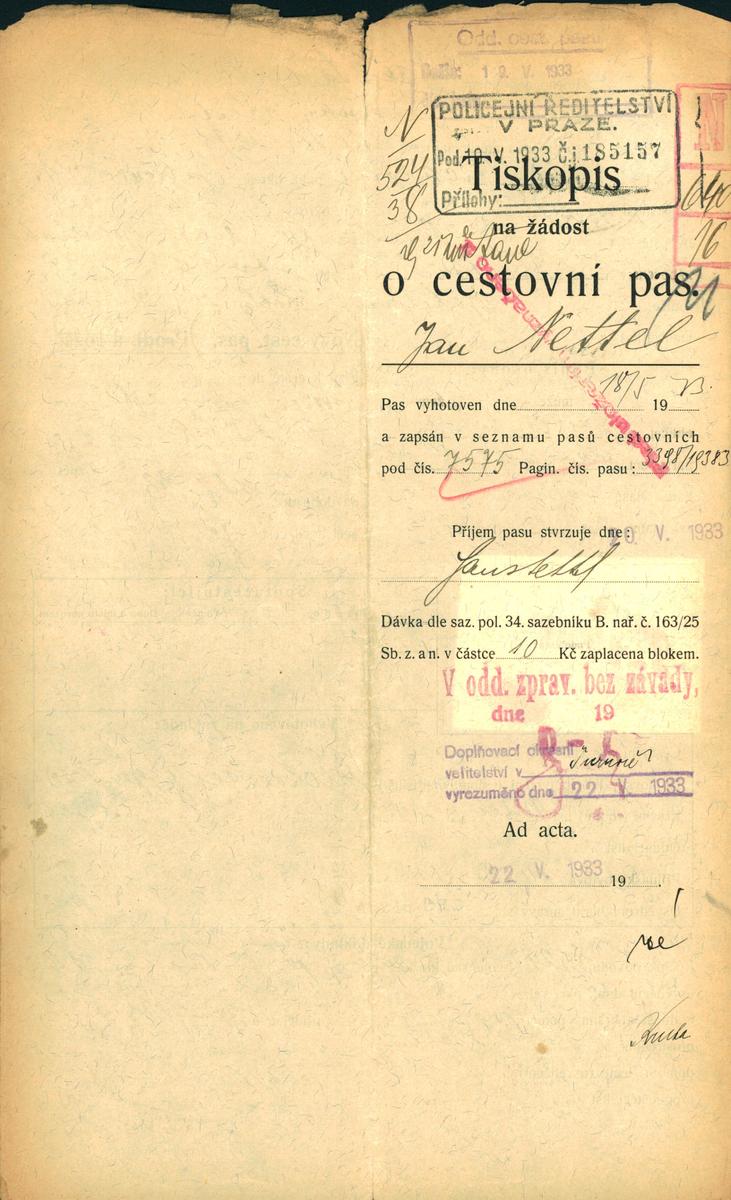 Odd. cest. pasů
Došlo: 19. V. 1933
POLICEJNÍ ŘEDITELSTVÍ
V PRAZE.
Pod. 19. V. 1933 Č.j. 185157
Přílohy:
N
524
38
N
640
16
Tiskopis
na žádost
o cestovní pas.
Jan Nettel
Pas vyhotoven dne 18/5 19 33.
a zapsán v seznamu pasů cestovních
pod čís. 7575 Pagin. čís. pasu: 3398/19383
Příjem pasu stvrzuje dne: 20. V. 1933
Dávka dle saz. pol. 34. sazebníku B. nař. č. 163/25
Sb. z. a n. v částce 10 Kč zaplacena blokem.
V odd. zprav. bez závady,
dne 19
Doplňovací okresní
velitelství v
vyrozuměno dne 22 V. 1933
Ad acta.
22 V. 1933 19 .